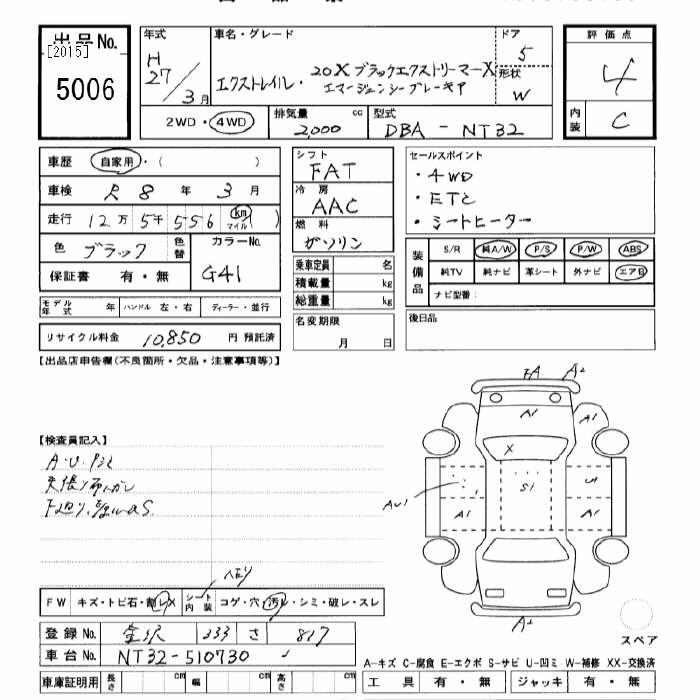 出品No.
[2015]
5006
年式
H
27/3月
車名・グレード
エクストレイル・20X ブラックエクストリーマーX
エマージェンシーブレーキP
ドア
5
形状
W
2WD・4WD
排気量 cc
2,000
型式
DBA-NT32
評価点
4
内装
C
車歴 自家用・( )
車検 R8年3月
走行 12万5千556 km マイル )
色 ブラック 色替
カラーNo.
G41
保証書 有・無
モデル年式 年 ハンドル 左・右 ディーラー・並行
リサイクル料金 10,850 円 預託済
シフト
FAT
冷房
AAC
燃料
ガソリン
乗車定員 名
積載量 kg
総重量 kg
名変期限
月 日
セールスポイント
・4WD
・ETC
・シートヒーター
装備品
S/R 純A/W P/S P/W ABS
純TV 純ナビ 革シート 外ナビ エアB
ナビ型番:
後日品
【出品店申告欄(不良箇所・欠品・注意事項等)】
【検査員記入】
A・U
FA A2
A1 A1
X
S1
AU1
A1 A1
A2
スペア
ヘタリ
FW キズ・トビ石・割レX シート内装 コゲ・穴・汚レ・シミ・破レ・スレ
登録No. 金沢 333 さ 817
車台No. NT32-510730
車庫証明用 長さ cm 幅 cm 高さ cm
A-キズ C-腐食 E-エクボ S-サビ U-凹ミ W-補修 XX-交換済
工具 有・無 ジャッキ 有・無